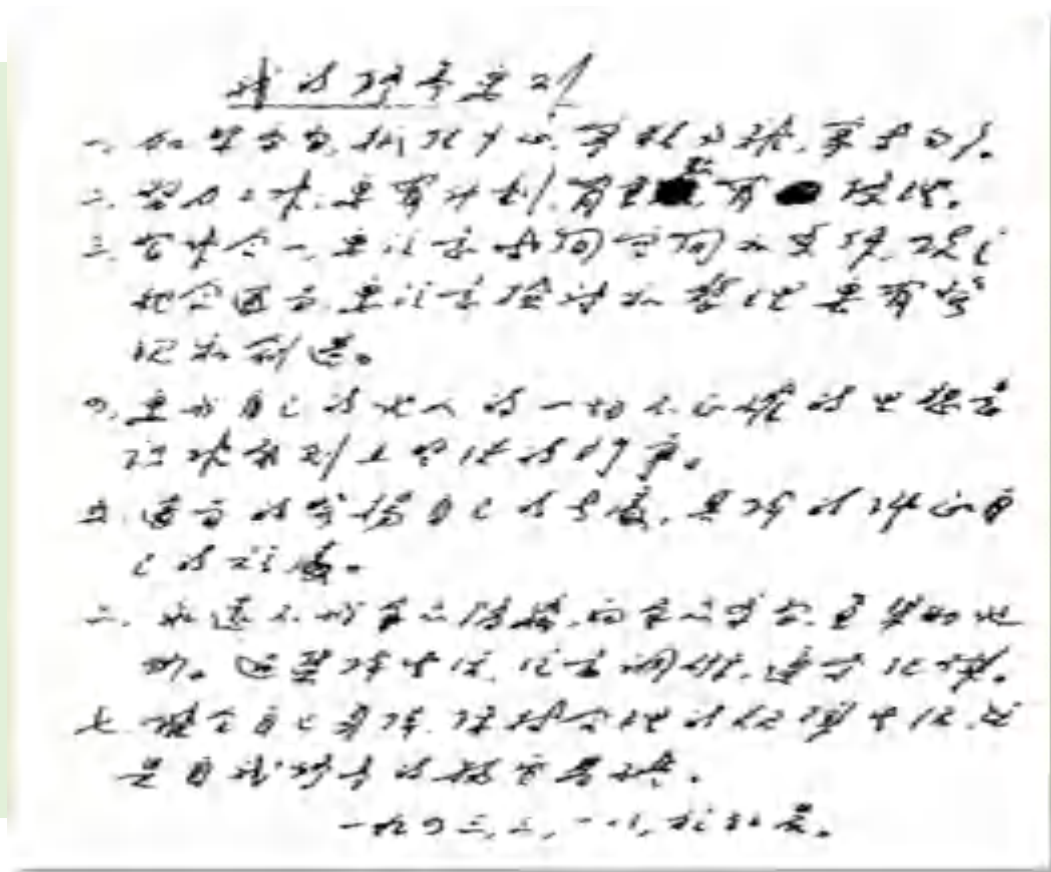 我的修养要则
一、加紧学习,抓住中心,宁精勿杂,宁专勿多。
二、努力工作,要有计划,有重点,有条理。
三、习作合一,要注意时间空间和条件,使之
配合适当,要注意检讨和整理,要有发
现和创造。
四、要与自己的他人的一切不正确的思想意
识作原则上坚决的斗争。
五、适当的发扬自己的长处,具体的纠正自
己的短处。
六、永远不与群众隔离,向群众学习,并帮助他
们。过集体生活,注意调研,遵守纪律。
七、健全自己身体,保持合理的规律生活,这
是自我修养的物质基础。
一九四三、三、一八,于红岩。